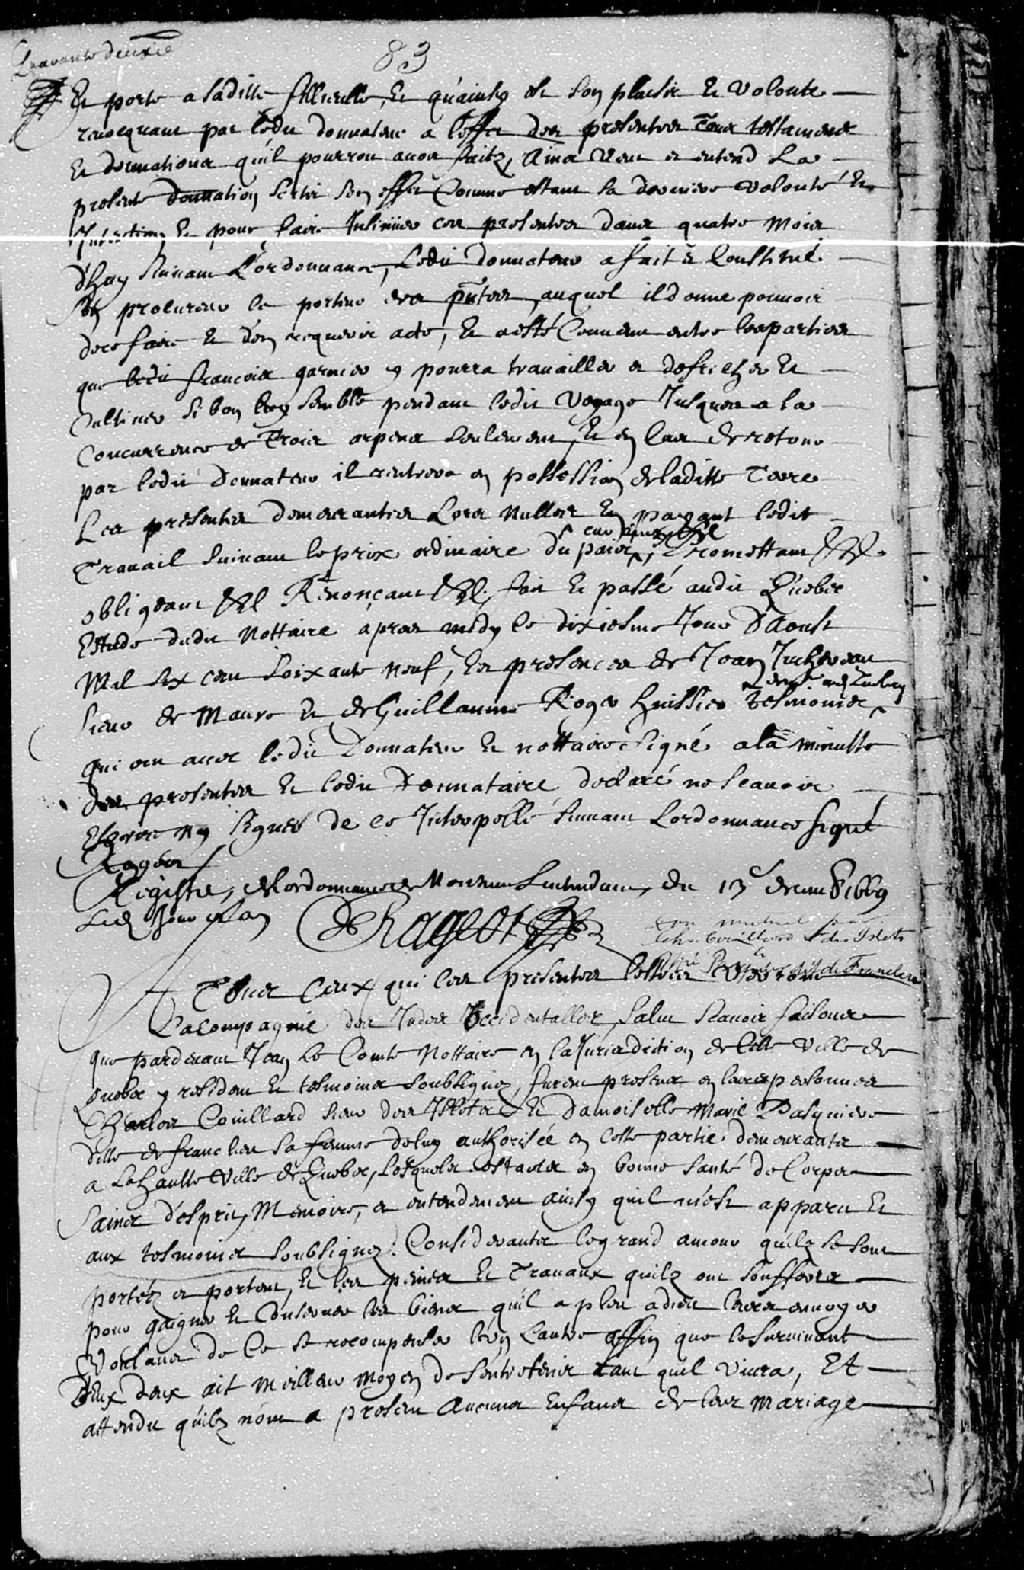 quarante deuxie
83
Et porte a saditte filleulle, Et qu'ainsy est son plaisir Et volonté
revocquant par ledit donnateur a l'effet des presentes Tous testamens
Et donnations qu'il pourroit avoir faitz, Ains veut et entend La
presente donnation sortir son effet Comme estant sa derniere volonté Et
Intention, Et pour faire Insinüer ces presentes dans quatre Mois
d'huy suivant L'ordonnance, Ledit donnateur a fait Et Constitué
son procureur le porteur des pñtes, auquel il donne pouvoir
de ce faire Et d'en requerir acte, Et a esté Convenu entre les parties
que ledit françois garnier y pourra travailler et desfricher Et
Cultiver si bon luy semble pendant ledit voyage Jusques a la
Concurrence de Trois arpens seulement, Et en cas de retour
par ledit donnateur il rentrera en possession de laditte Terre
Les presentes demeurantes Lors Nulles En payant ledit
Travail suivant le prix ordinaire du païs, Promettant &c.
obligeant &c Renonçant &c, fait Et passé audit Quebec
Estude dudit Nottaire apres midy le dixiesme Jour d'Aoust
Mil six cent soixante neuf, Es presences de Jean Juchereau
sieur de Maure Et de Guillaume Roger huissier tesmoins
qui ont avec ledit Donnateur Et nottaire signé a la minutte
des presentes Et ledit Donnataire declaré ne scavoir
Escrire ny signer de ce Interpellé suivant Lordonnance signé
Rageot
Registré, de l'ordonnance de Monsieur Lintendant, du 13e decemb 1669
Lesd Jour et an
Rageot
A Tous Ceux qui ces presentes lettres verront
La Compagnie des Indes Occidentalles, Salut scavoir faisons
que pardevant Jean Le Comte Nottaire en la Jurisdiction de cette ville de
Quebec y resident Et tesmoins soubsignez, furent presens en leurs personnes
Charles Couillard sieur des Islets Et Damoiselle Marie Pasquier
dille de franclieu sa femme de luy authorisée en cette partie demeurants
a La haulte ville de Quebec, Lesquels estants en bonne santé de Corps
sains d'esprit, Memoire, et entendement ainsy quil m'est apparu Et
aux tesmoins soubsignez. Considerants le grand amour quilz se sont
portéz et portent, Et les peines Et Travaux quilz ont soufferts
pour gaigner Et Conserver les biens qu'il a pleu a dieu leurs envoyer
Voulans de Ce se recompenser l'un L'autre affin que le survivant
d'Eux deux ait meilleur moyen de s'entretenir tant quil vivra, Et
attendu quilz n'ont a present Aucuns Enfans de leur mariage